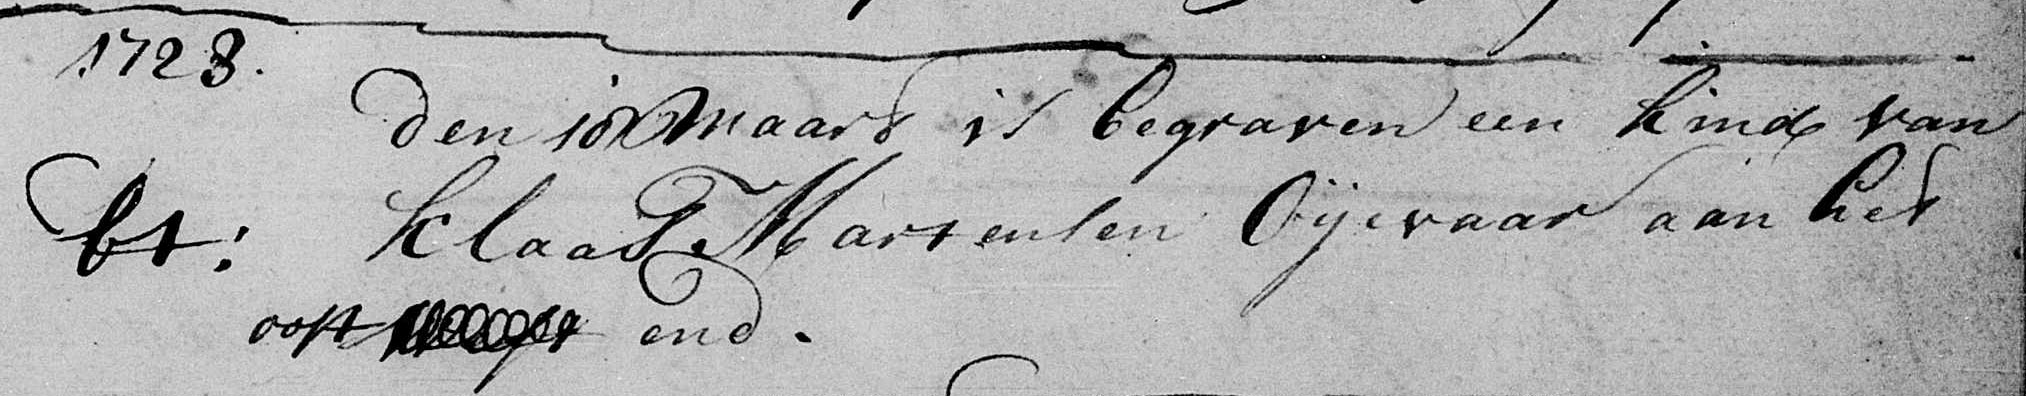 1728.
den 10 maart is begraven een kind van
bt: klaas Martensen Oijevaar aan het
oost end.